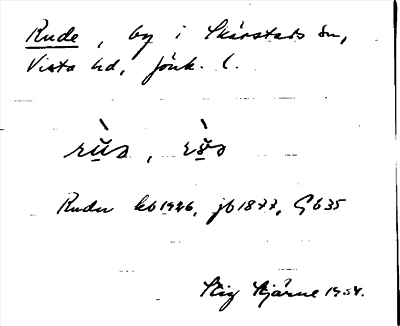 Rude, by i Skärstads sn,
Vista hd, Jönk. l.
Ruder kb 1926, jb 1877, Gb 35
Stig Bjärme 1954.